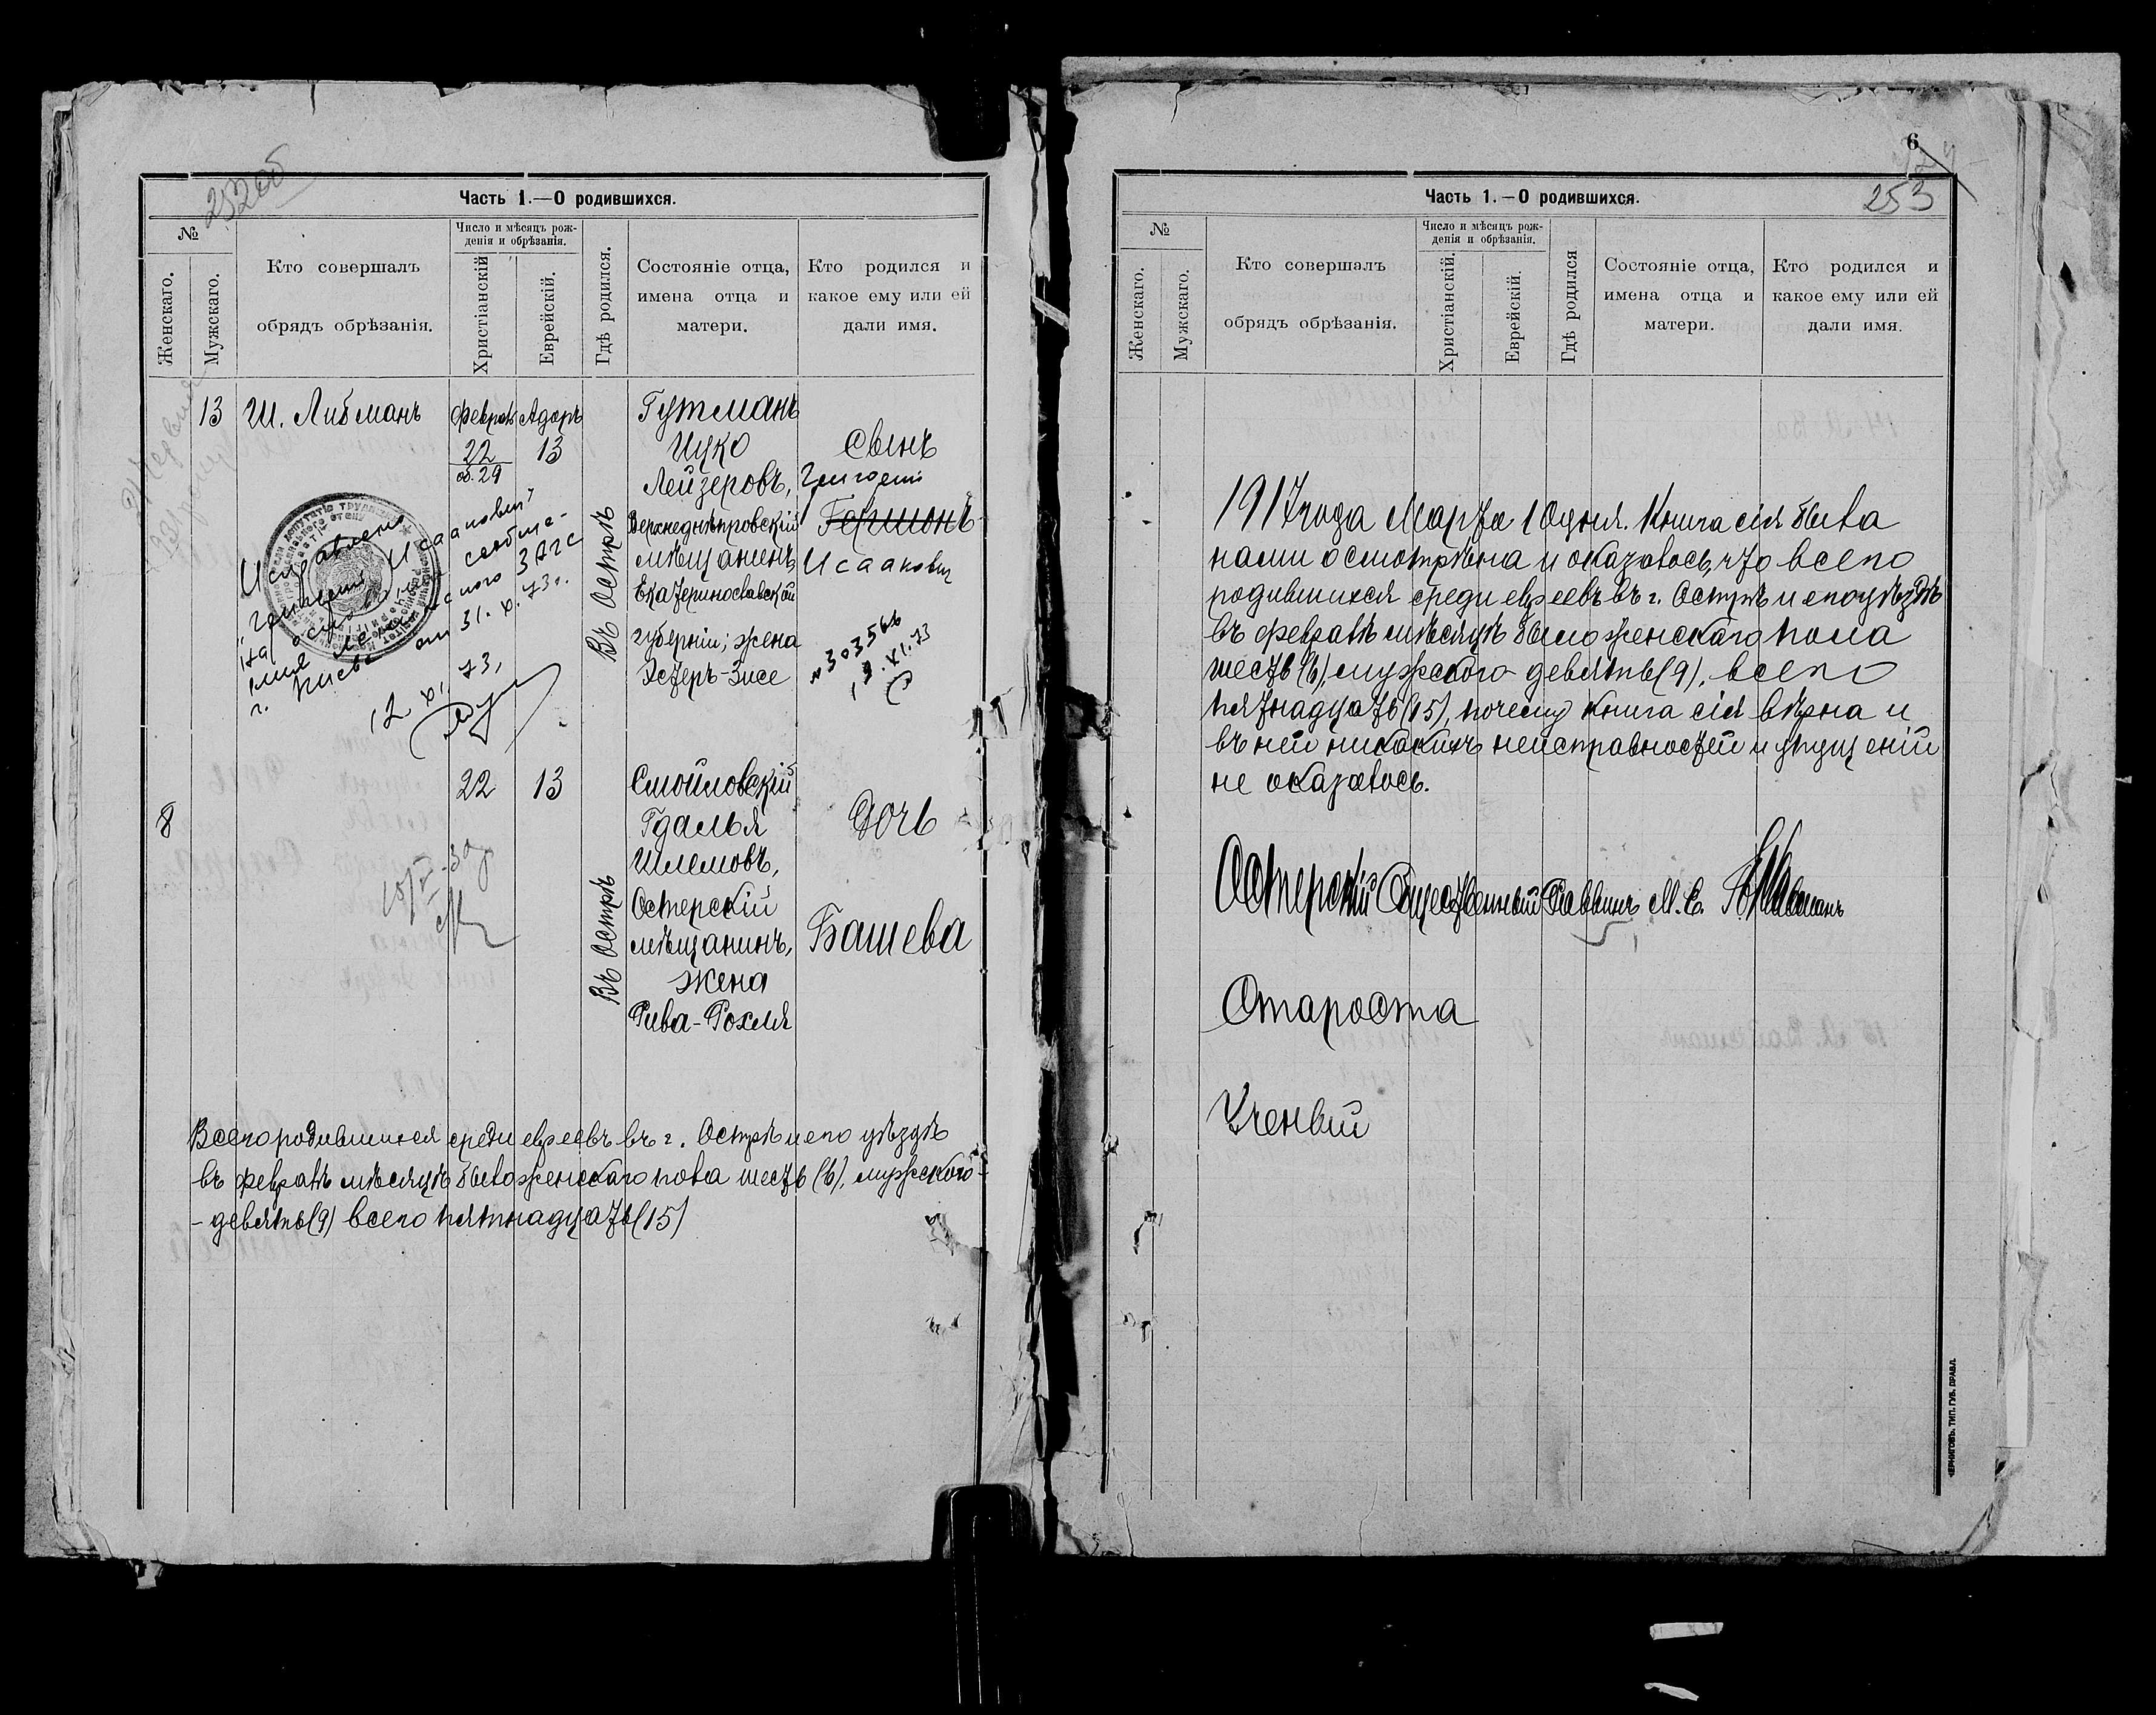 252 об
Часть 1.—О родившихся.
№
Женскаго.
Мужскаго.
Кто совершалъ
обрядъ обрѣзанія.
Число и мѣсяцъ рож-
денія и обрѣзанія.
Христіанскій
Еврейскій.
Гдѣ родился.
Состояніе отца,
имена отца и
матери.
Кто родился и
какое ему или ей
дали имя.
13 Ш. Либманъ
Февраль Адаръ
22 13
об. 29
Въ Острѣ
Гутманъ
Ицко
Лейзеровъ,
Верхнеднѣпровскій
мѣщанинъ,
Екатеринославской
губерніи; жена
Эстеръ-Зисе
Сынъ
Григорий
Гершонъ
Исаакович
№ 303566
13.XI.73
Исправлено
"Григорий Исаакович"
на основании сообще-
ния Ленинского ЗАГС
г. Киева от 31.X.73г.
12 XI. 73,
8
22 13
Въ Острѣ
Смойловскій
Гдалья
Шлемовъ,
Остерскій
мѣщанинъ,
жена
Рива-Рохля
Дочь
Башева
Всего родившихся среди евреевъ въ г. Острѣ и его уѣздѣ
въ февралѣ мѣсяцѣ было женскаго пола шесть (6), мужского-
- девять (9) всего пятнадцать (15)
6
253
Часть 1.—О родившихся.
№
Женскаго.
Мужскаго.
Кто совершалъ
обрядъ обрѣзанія.
Число и мѣсяцъ рож-
денія и обрѣзанія.
Христіанскій.
Еврейскій.
Гдѣ родился
Состояніе отца,
имена отца и
матери.
Кто родился и
какое ему или ей
дали имя.
1917 года Марта 10 дня. Книга сія была
нами осмотрѣна и оказалось, что всего
родившихся среди евреевъ въ г. Острѣ и его уѣздѣ
въ февралѣ мѣсяцѣ было женскаго пола
шесть (6), мужского девять (9), всего
пятнадцать (15), почему книга сія вѣрна и
въ ней никакихъ неисправностей и упущеній
не оказалось.
Остерскій Общественный Раввинъ М. С.
Староста
Ученый
ЧЕРНИГОВЪ. ТИП. ГУБ. ПРАВЛ.